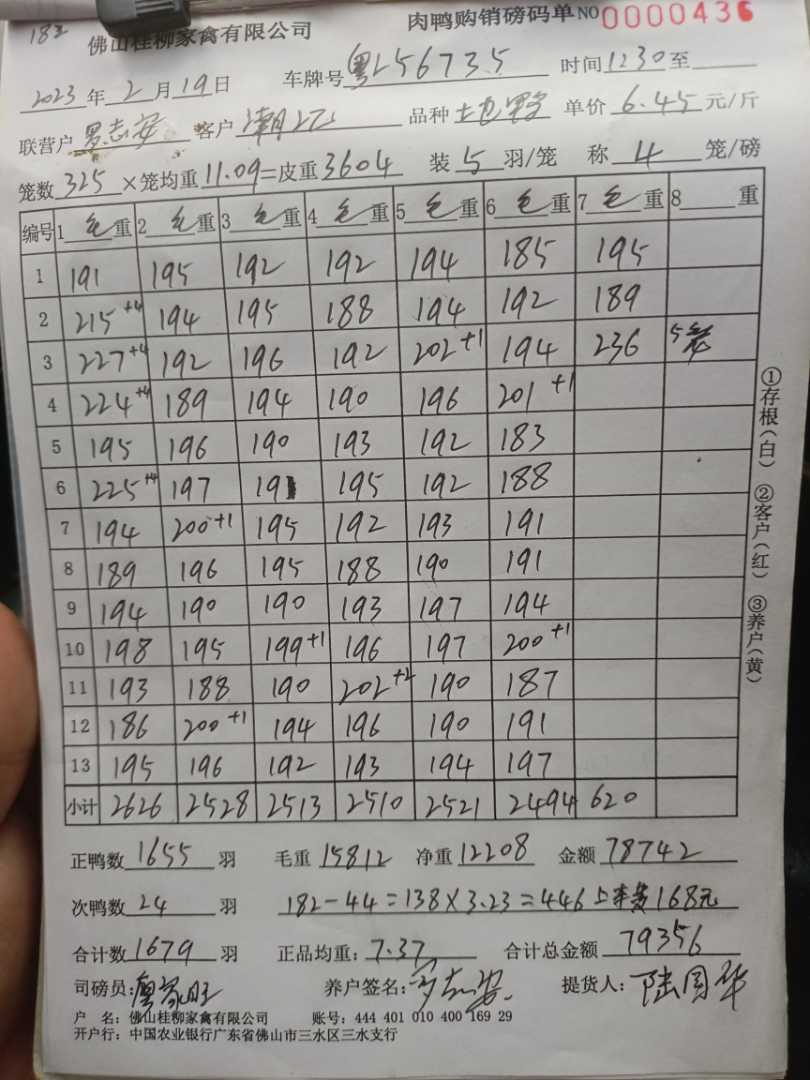 182
佛山桂柳家禽有限公司 肉鸭购销磅码单 NO 0000436
2023年2月19日 车牌号粤L56735 时间1230至
联营户罗志安 客户潮记 品种 单价6.45元/斤
笼数325×笼均重11.09=皮重3604 装5羽/笼 称4笼/磅
编号 1毛重 2毛重 3毛重 4毛重 5毛重 6毛重 7毛重 8重
1 191 195 192 192 194 185 195
2 215+4 194 195 188 194 192 189
3 227+4 192 196 192 202+1 194 236 5笼
4 224+4 189 194 190 196 201+1
5 195 196 190 193 192 183
6 225+4 197 191 195 192 188
7 194 200+1 195 192 193 191
8 189 196 195 188 190 191
9 194 190 190 193 197 194
10 198 195 199+1 196 197 200+1
11 193 188 190 202+2 190 187
12 186 200+1 194 196 190 191
13 195 196 192 193 194 197
小计 2626 2528 2513 2510 2521 2494 620
①存根(白) ②客户(红) ③养户(黄)
正鸭数1655羽 毛重15812 净重12208 金额78742
次鸭数24羽 182-44=138×3.23=446 上车费168元
合计数1679羽 正品均重:7.37 合计总金额79356
司磅员:廖家旺 养户签名:罗志安 提货人:陆国华
户 名:佛山桂柳家禽有限公司 账号:444 401 010 400 169 29
开户行:中国农业银行广东省佛山市三水区三水支行